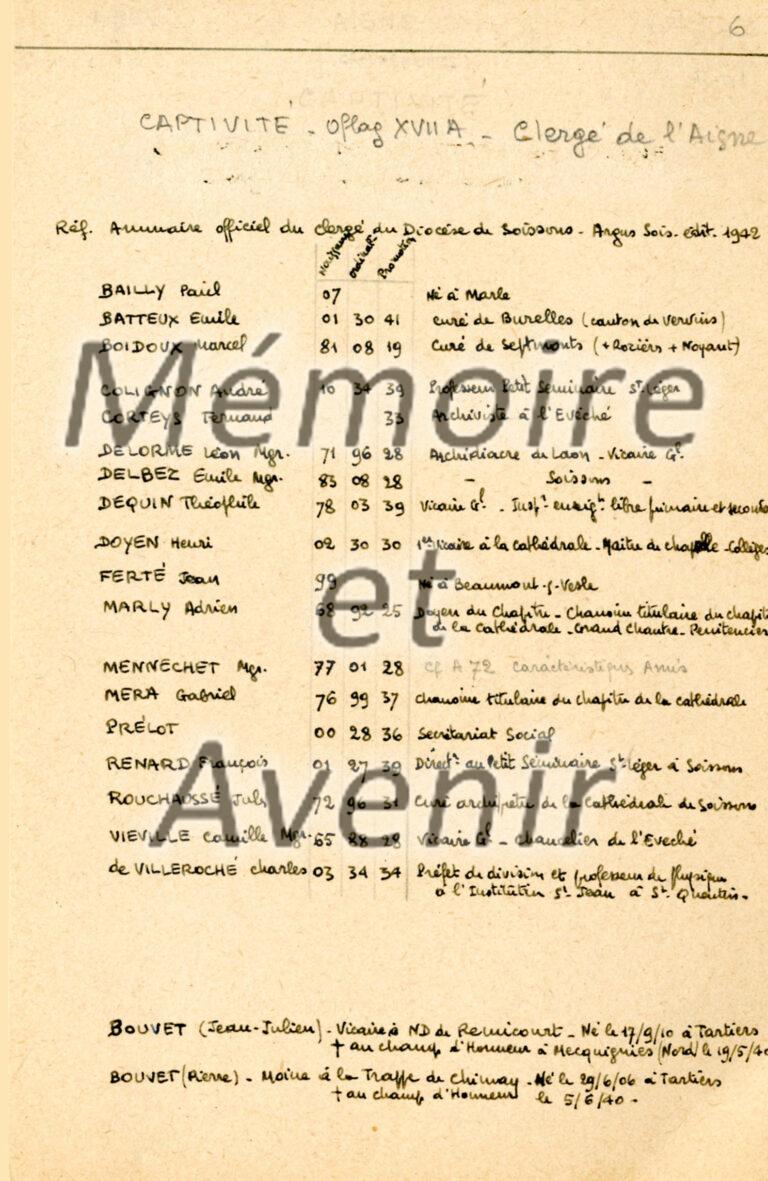 6
CAPTIVITÉ - Oflag XVII A - Clergé de l'Aisne
Réf. Annuaire officiel du Clergé du Diocèse de Soissons - Argus Sois. édit. 1942
Naissance Ordinat. Promotion
BAILLY Paul 07 Né à Marle
BATTEUX Emile 01 30 41 curé de Burelles (canton de Vervins)
BOIDOUX Marcel 81 08 19 Curé de Septmonts (+ Roziers + Noyant)
Mémoire
COLIGNON André 10 34 39 Professeur Petit Séminaire St Léger
CORTEYS Fernand 33 Archiviste à l'Evêché
DELORME Léon Mgr. 71 96 28 Archidiacre de Laon - Vicaire Gl.
DELBEZ Emile Mgr. 83 08 28 - Soissons -
DEQUIN Théophile 78 03 39 Vicaire Gl - Inspr enseigt libre primaire et
DOYEN Henri 02 30 30 1er Vicaire à la Cathédrale - Maître de chapelle - Collèges
FERTÉ Jean 99 Né à Beaumont-s-Vesle
et
MARLY Adrien 68 92 25 Doyen du Chapitre - Chanoine titulaire du
de la Cathédrale - Grand Chantre - Penitencier
MENNECHET Mgr. 77 01 28 cf A 72
MERA Gabriel 76 99 37 chanoine titulaire du chapitre de la cathédrale
PRÉLOT 00 28 36 Secrétariat Social
RENARD François 01 27 39 Directr au Petit Séminaire St Léger à Soissons
Avenir
ROUCHAUSSÉ Jules 72 96 31 Curé archiprêtre de la Cathédrale de Soissons
VIEVILLE Camille Mgr. 65 88 28 Vicaire Gl - Chancelier de l'Evêché
de VILLEROCHÉ Charles 03 34 34 Préfet de division et professeur de Physique
à l'Institution St Jean à St Quentin -
BOUVET (Jean-Julien) - Vicaire à ND de Remicourt - Né le 17/9/10 à Tartiers
† au champ d'Honneur à Mecquignies (Nord) le 19/5/40
BOUVET (Pierre) - Moine à la Trappe de Chimay - Né le 29/6/06 à Tartiers
† au champ d'Honneur le 5/6/40 -